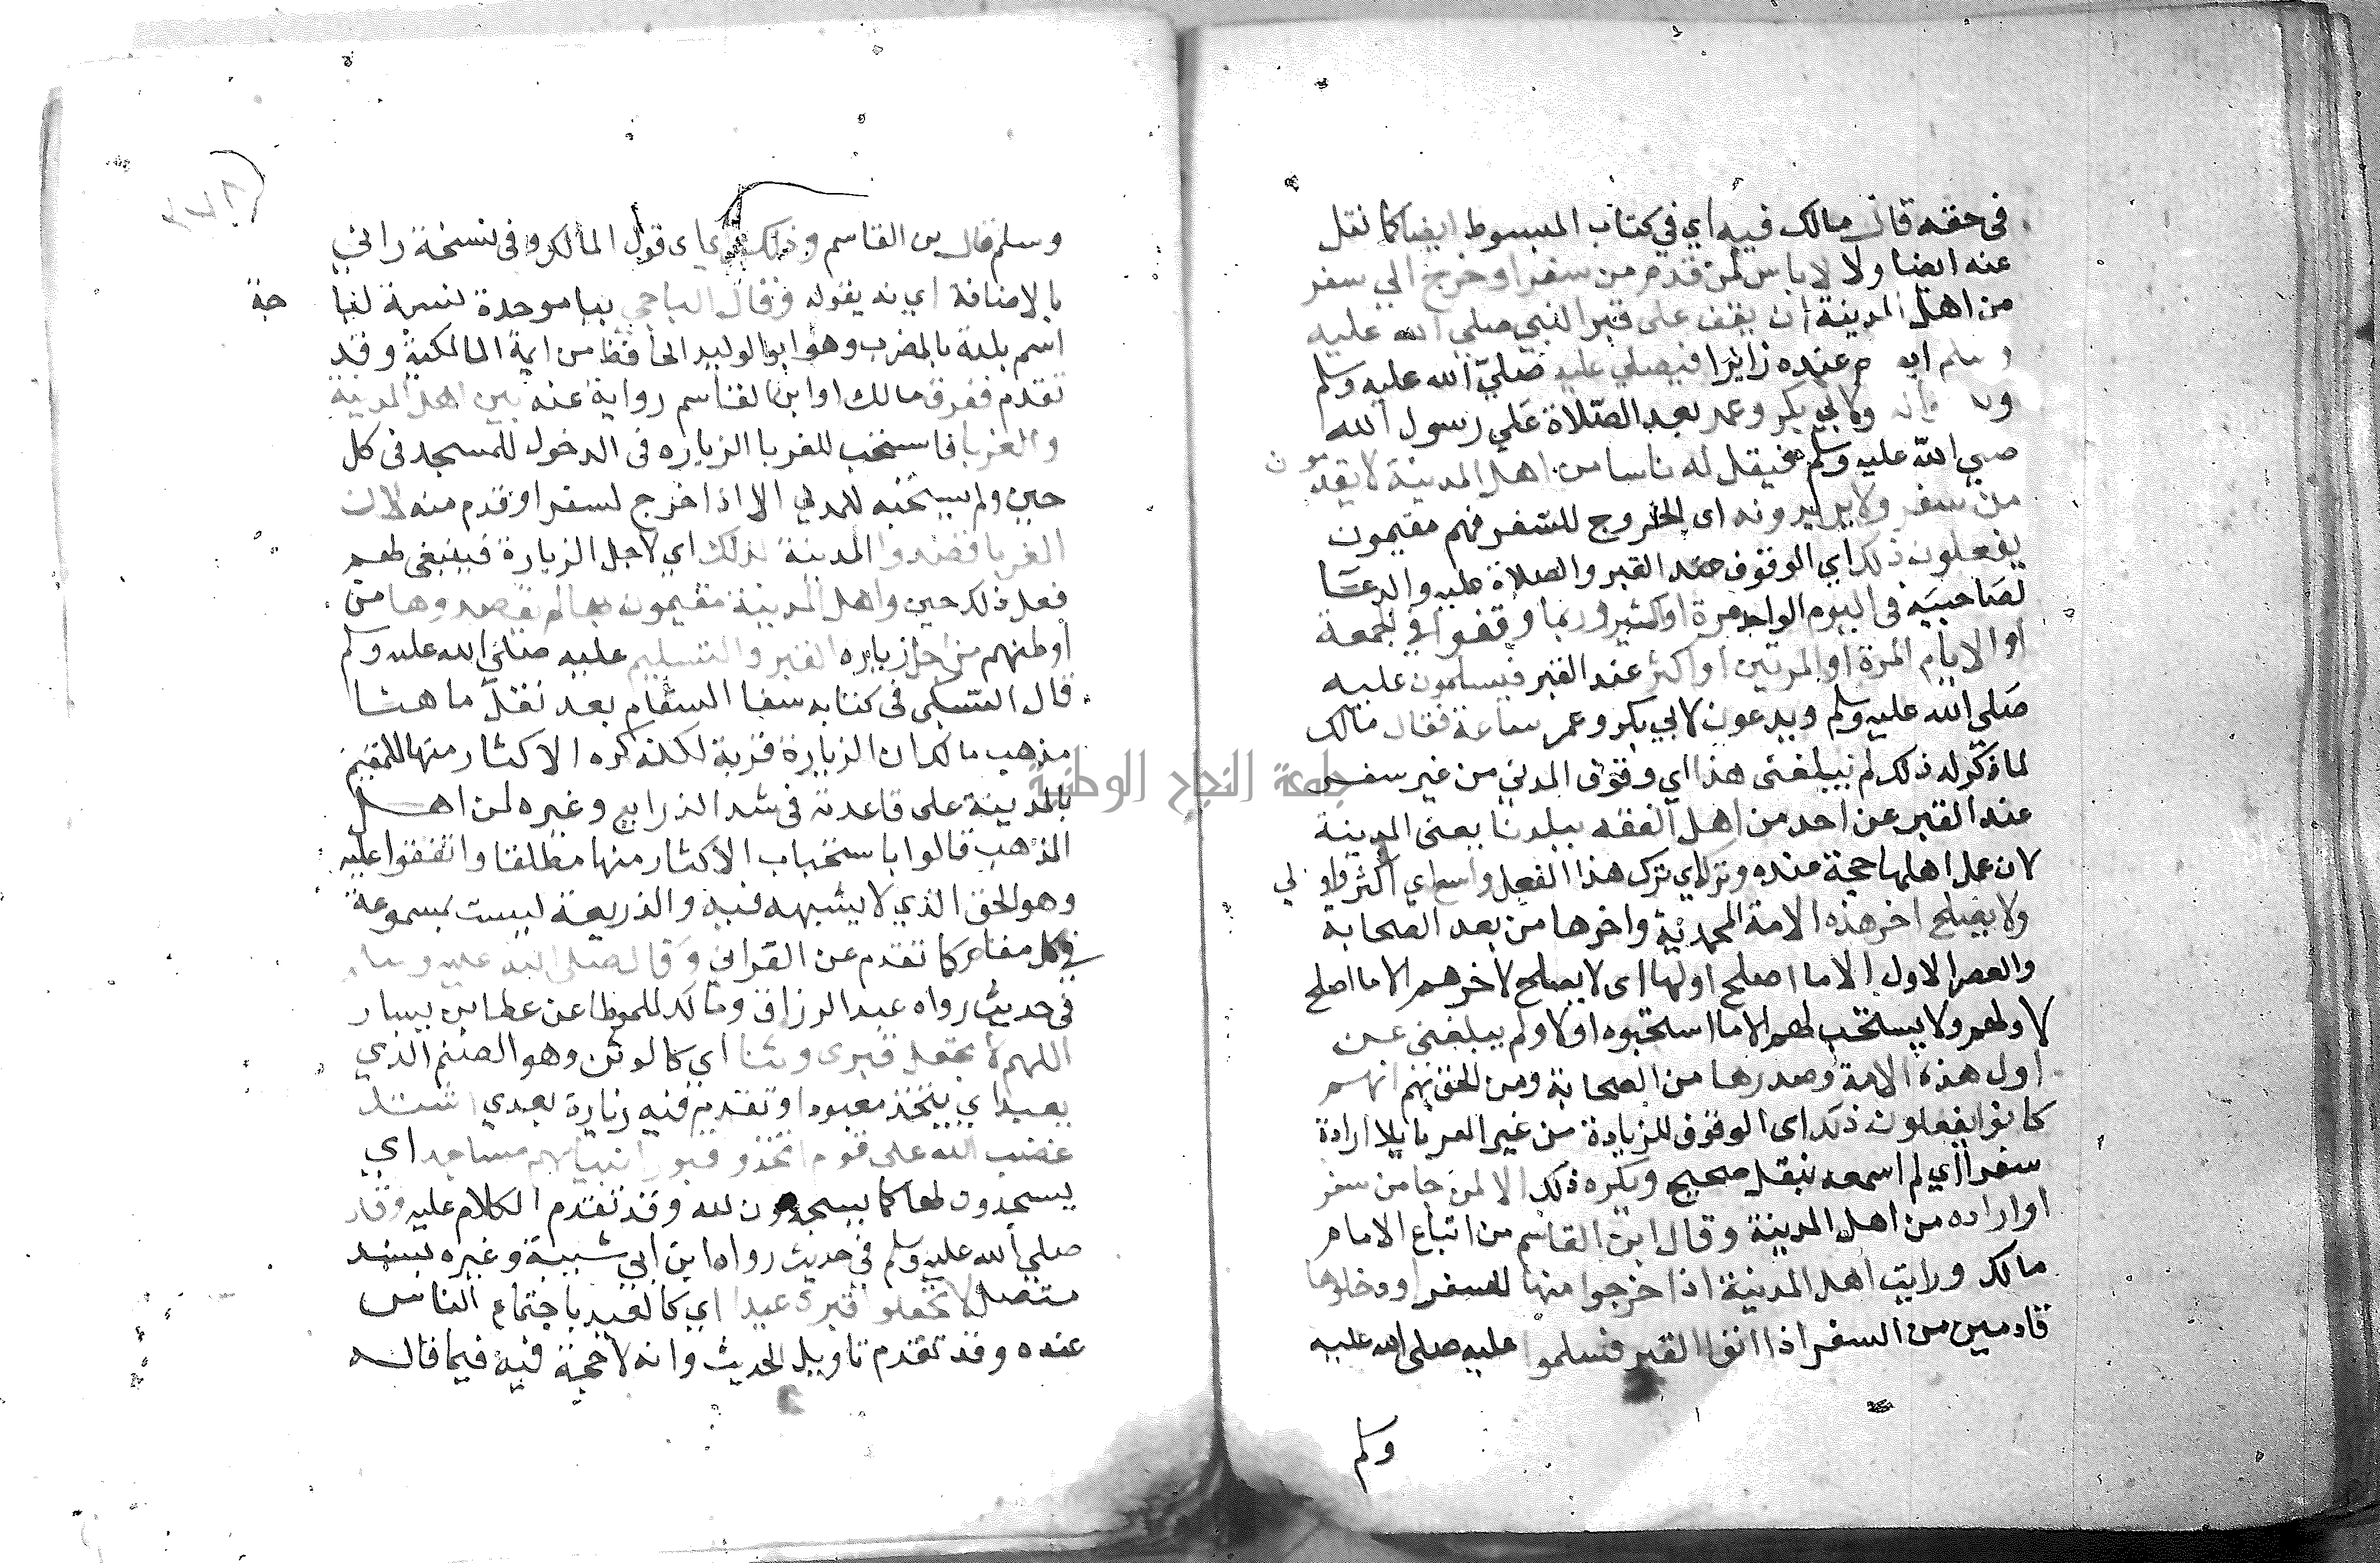 في حقه قال مالك فيه اي في كتاب المبسوط ايضا كما نقل
عنه ايضا ولا لا باس لمن قدم من سفر او خرج الي سفر
من اهل المدينة ان يقف على قبر النبي صلي الله عليه
وسلم عنده زايرا فيصلي عليه صلي الله عليه وسلم
ولابي بكر وعمر بعد الصلاة علي رسول الله
صلي الله عليه وسلم فقيل له ناسا من اهل المدينة لا يقدمون
من سفر ولا يريدونه اى الخروج للسفر فهم مقيمون
يفعلون ذلك اي الوقوف عند القبر والصلاة عليه والدعا
لصاحبيه في اليوم الواحد مرة او اكثر وربما وقفوا في الجمعة
او الايام المرة او المرتين او اكثر عند القبر فيسلمون عليه
صلي الله عليه وسلم ويدعون لابي بكر وعمر ساعة فقال مالك
لما ذكر له ذلك لم يبلغنى هذا اي وقوف المدني من غير سفر
عند القبر عن احد من اهل الفقه ببلدنا يعنى المدينة
لان عمل اهلها حجة عنده وتركه اي ترك هذا الفعل واسع اي اكثر واولي
ولا يصلح اخر هذه الامة المحمدية واخرها من بعد الصحابة
والعصر الاول الا ما اصلح اولها اى لا يصلح لاخرهم الا ما اصلح
لاولهم ولا يستحب لهم الا ما استحبوه اولا ولم يبلغنى عن
اول هذه الامة وصدرها من الصحابة ومن لحق بهم انهم
كانوا يفعلون ذلك اى الوقوف للزيادة من غير الغربا بلا ارادة
سفر اي لم اسمعه بنقل صحيح ويكره ذلك الا لمن جا من سفر
او اراده من اهل المدينة وقال ابن القاسم من اتباع الامام
مالك ورايت اهل المدينة اذا خرجوا منها للسفر او دخلوها
قادمين من السفر اذا اتوا القبر فسلموا عليه صلى الله عليه
وسلم
وسلم قال بن القاسم وذلك اى قول المالك وفى نسخة راني
بالاضافة اي به يقوله وقال الباجي ببا موحدة نسبة لبا جة
اسم بلدة بالمغرب وهو ابو الوليد الحافظ من ايمة المالكية وقد
تقدم ففرق مالك او ابن القاسم رواية عنه بين اهل المدينة
والغربا فاستحب للغربا الزياره فى الدخول للمسجد فى كل
حين ولم يستحبه للمدني الا اذا خرج لسفر او قدم منه لان
الغربا قصدوا المدينة لذلك اي لاجل الزيارة فينبغى لهم
فعل ذلك حين واهل المدينة مقيمون بها لم يقصدوها من
اوطنهم من اجل زياره القبر والتسليم عليه صلي الله عليه وسلم
قال السبكى فى كتابه سفا السقام بعد نقل ما هنا
مذهب مالك ان الزيارة قربة لكنه كره الاكثار منها للمقيم
بالمدينة على قاعدته فى سد الذرايع وغيره من اهل
المذهب قالوا باستحباب الاكثار منها مطلقا واتفقوا عليه
وهو الحق الذي لا يشبهه فيه والذريعة ليست بمسموعة
في كل مقام كما تقدم عن القرافي وقال صلى الله عليه وسلم
فى حديث رواه عبد الرزاق ومالك للموطا عن عطا بن يسار
اللهم لا تجعل قبرى وثنا اي كالوثن وهو الصنم الذي
يعبد اي يتخذ معبودا وتقدم فيه زيارة بعدي اشتد
غضب الله على قوم اتخذو قبور انبيايهم مساجد اي
يسجدون لها كما يسجدون لله وقد تقدم الكلام عليه وقال
صلي الله عليه وسلم في حديث رواه ابن ابي شيبة وغيره بسند
متصل لا تجعلو قبرى عيدا اي كالعيد باجتماع الناس
عنده وقد تقدم تاويل الحديث وانه لا حجة فيه فيما قاله
جامعة النجاح الوطنية